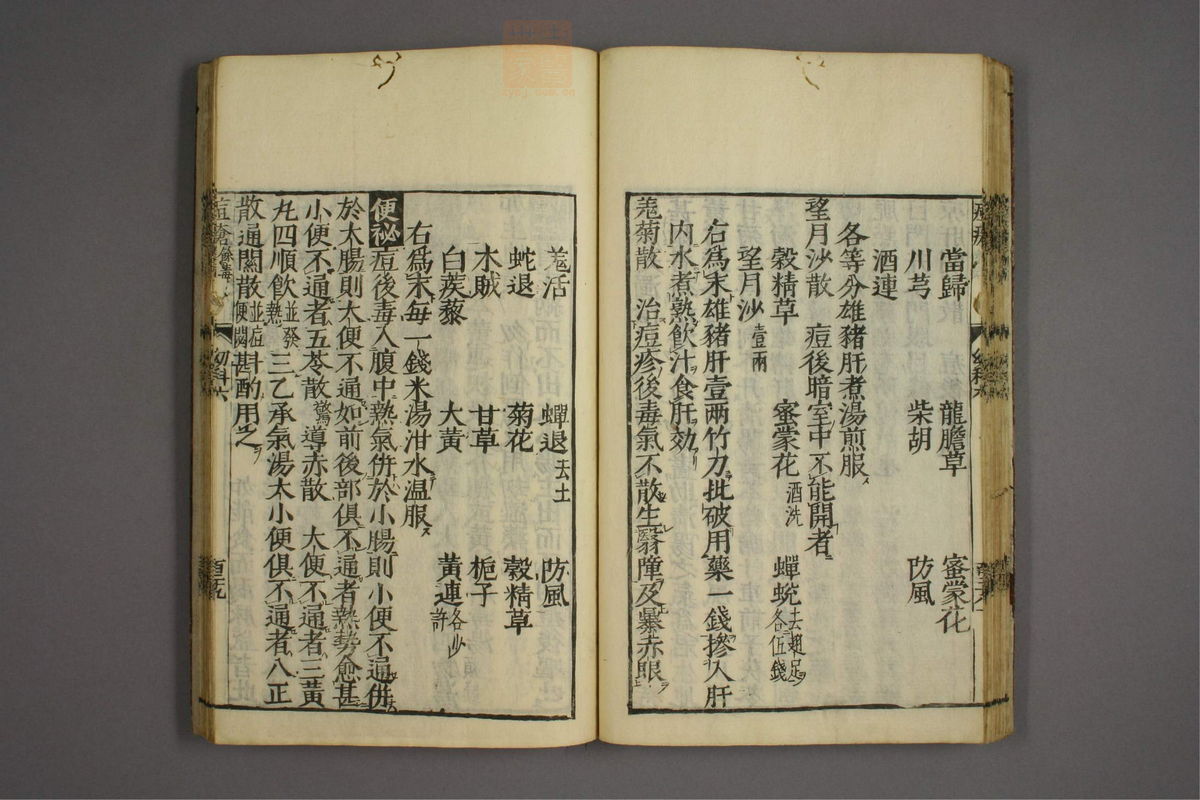 當歸 龍膽草 蜜蒙花
川芎 柴胡 防風
酒連
各等分雄豬肝煮湯煎服
望月沙散 痘後暗室中不能開者
穀精草 蜜蒙花酒洗 蟬蛻去翅足各伍錢
望月沙壹兩
右為末雄豬肝壹兩竹刀批破用藥一錢摻入肝
內水煮熟飲汁食肝効
羗菊散 治痘疹後毒氣不散生翳障及暴赤眼
羗活 蟬退去土 防風
蛇退 菊花 穀精草
木賊 甘草 梔子
白蒺藜 大黃 黃連各少許
右為末每一錢米湯泔水温服
便祕 痘後毒入腹中熱氣併於小腸則小便不通併
於大腸則大便不通如前後部俱不通者熱勢愈甚
小便不通者五苓散驚導赤散 大便不通者三黃
丸四順飲並發熱三乙承氣湯大小便俱不通者八正
散通關散並痘便閉斟酌用之
幼科六